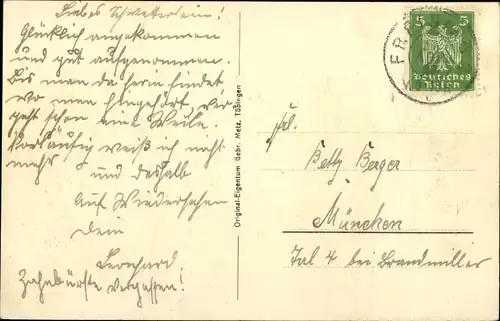 Liebes Schwesterlein!
Glücklich angekommen
und gut aufgenommen.
Bis man da herin findet,
wo man hingehört, ver-
geht schon eine Weile.
Vorläufig weiß ich nicht
mehr
und deshalb
Auf Wiedersehen
Dein
Leonhard
Zahnbürste vergessen!
Original-Eigentum Gebr. Metz, Tübingen
5 5
Deutsches
Reich
Frl.
Betty Berger
München
Tal 4 bei Brandmiller